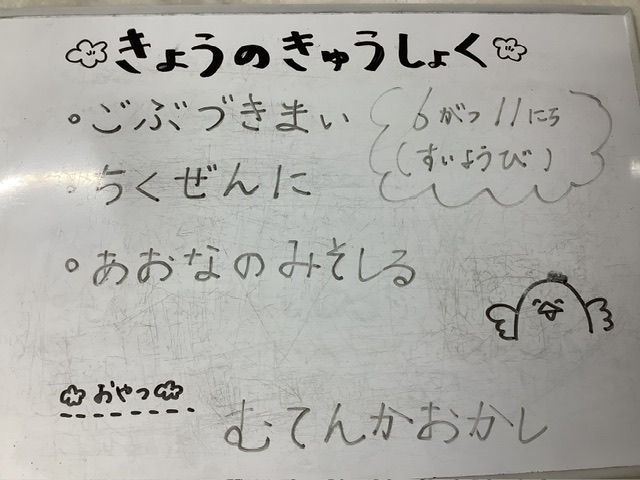 きょうのきゅうしょく
・ごぶづきまい
6がつ11にち
(すいようび)
・ちくぜんに
・あおなのみそしる
おやつ
むてんかおかし